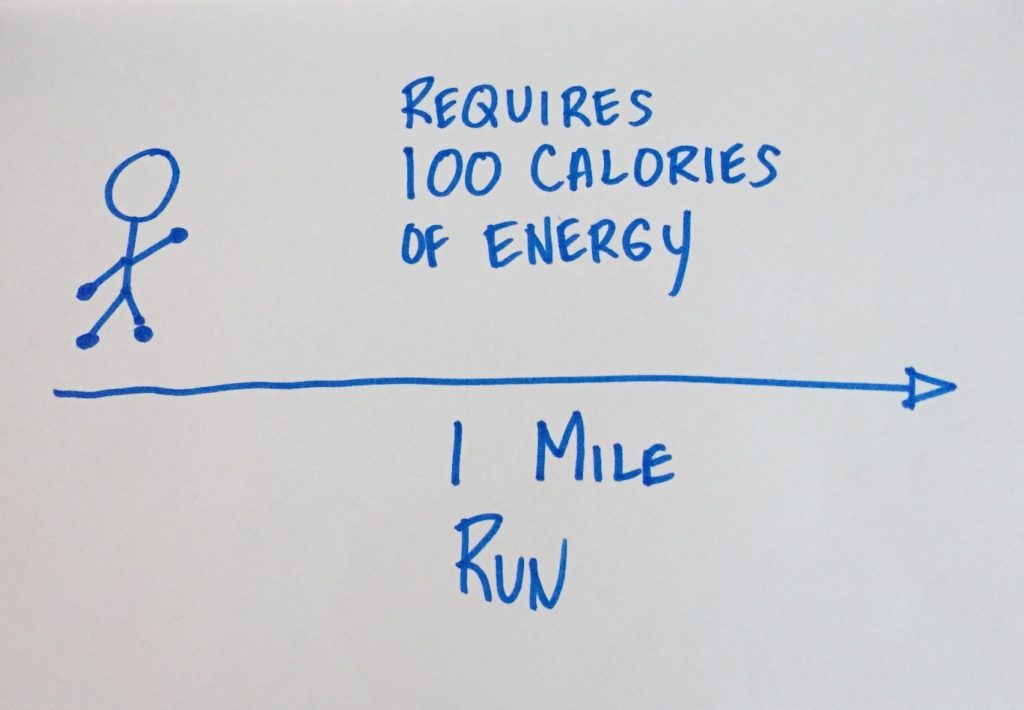 REQUIRES
100 CALORIES
OF ENERGY
1 MILE
RUN